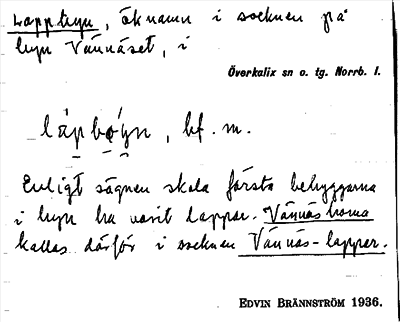 Lappbyn, öknamn i socknen på
byn Vännäset, i
Överkalix sn o. tg. Norrb. l.
bf. m.
Enligt sägnen skola första bebyggarna
i byn ha varit lappar. Vännäsborna
kallas därför i socknen Vännäs-lappar.
EDVIN BRÄNNSTRÖM 1936.